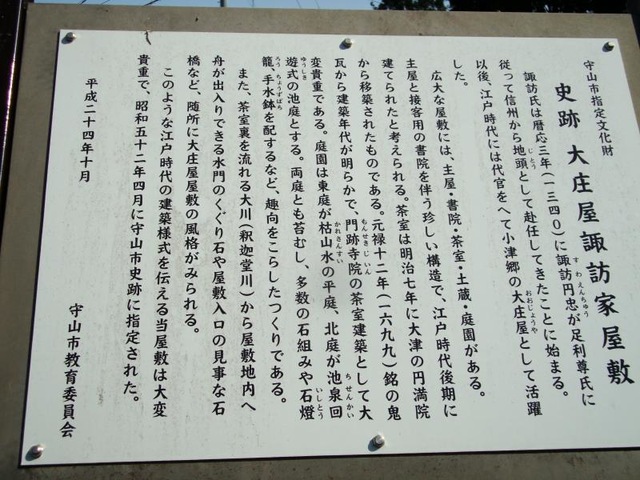 守山市指定文化財
史跡 大庄屋諏訪家屋敷
諏訪氏は暦応三年(一三四〇)に諏訪円忠が足利尊氏に
従って信州から地頭として赴任してきたことに始まる。
以後、江戸時代には代官をへて小津郷の大庄屋として活躍
した。
広大な屋敷には、主屋・書院・茶室・土蔵・庭園がある。
主屋と接客用の書院を伴う珍しい構造で、江戸時代後期に
建てられたと考えられる。茶室は明治七年に大津の円満院
から移築されたものである。元禄十二年(一六九九)銘の鬼
瓦から建築年代が明らかで、門跡寺院の茶室建築として大
変貴重である。庭園は東庭が枯山水の平庭、北庭が池泉回
遊式の池庭とする。両庭とも苔むし、多数の石組みや石燈
籠、手水鉢を配するなど、趣向をこらしたつくりである。
また、茶室裏を流れる大川(釈迦堂川)から屋敷地内へ
舟が出入りできる水門のくぐり石や屋敷入口の見事な石
橋など、随所に大庄屋屋敷の風格がみられる。
このような江戸時代の建築様式を伝える当屋敷は大変
貴重で、昭和五十二年四月に守山市史跡に指定された。
平成二十四年十月
守山市教育委員会